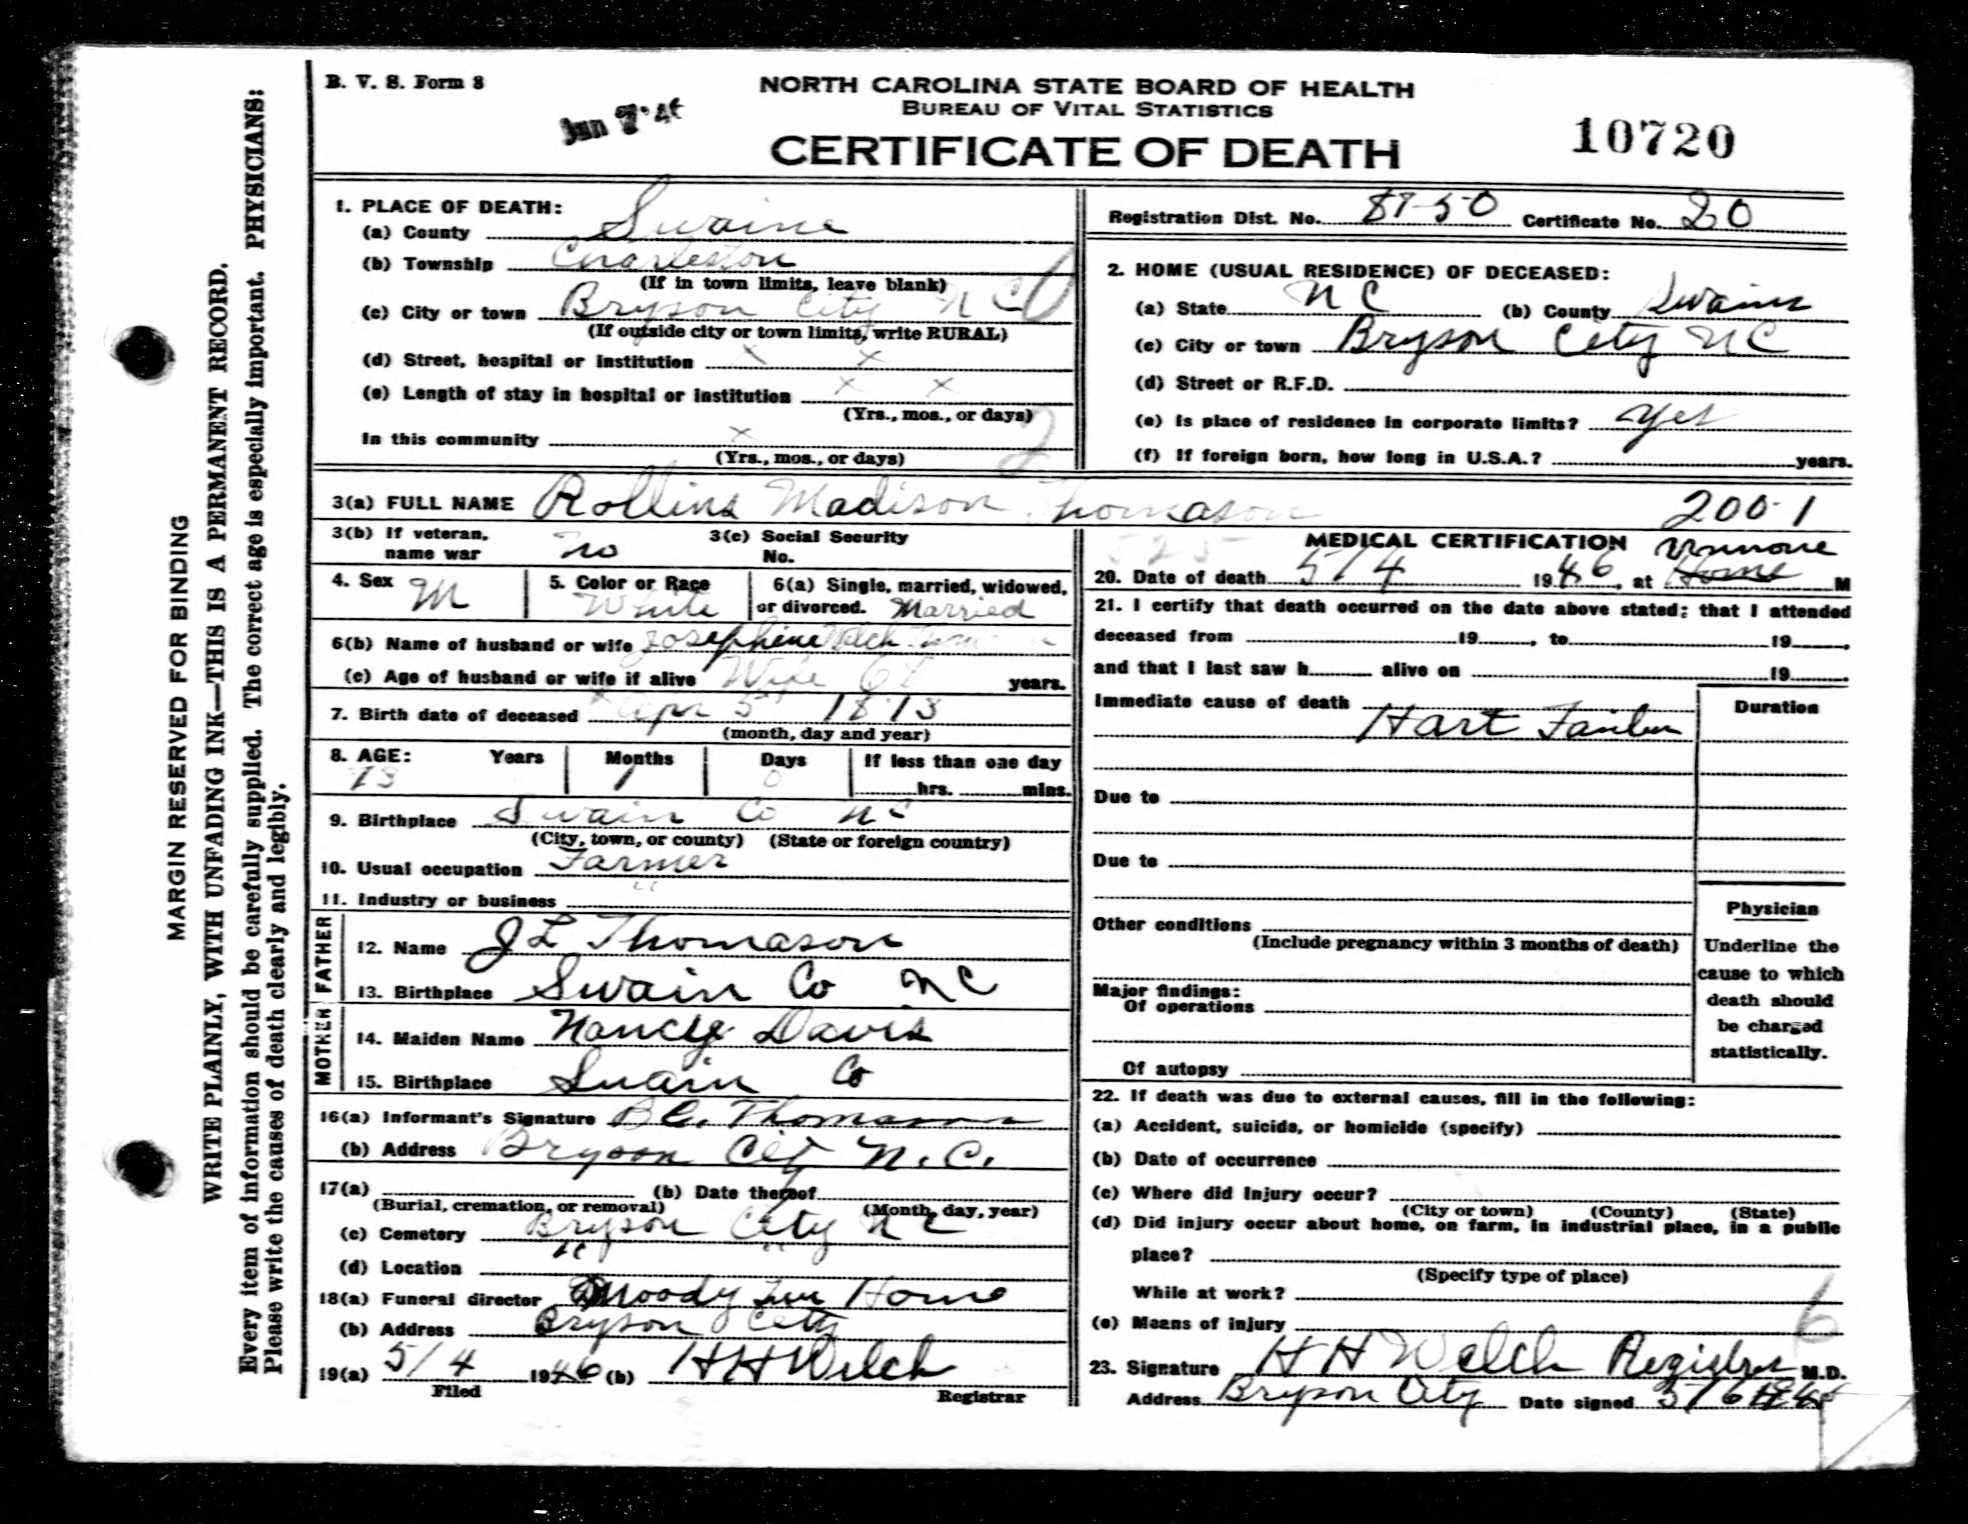 B. V. S. Form 8
NORTH CAROLINA STATE BOARD OF HEALTH
BUREAU OF VITAL STATISTICS
CERTIFICATE OF DEATH
Jun 7 '46
10720
MARGIN RESERVED FOR BINDING
WRITE PLAINLY, WITH UNFADING INK—THIS IS A PERMANENT RECORD.
Every item of information should be carefully supplied. The correct age is especially important. PHYSICIANS:
Please write the causes of death clearly and legibly.
1. PLACE OF DEATH:
(a) County Swaine
(b) Township Charleston
(If in town limits, leave blank)
(c) City or town Bryson City N C
(If outside city or town limits, write RURAL)
(d) Street, hospital or institution x x
(e) Length of stay in hospital or institution x x
(Yrs., mos., or days)
In this community x
(Yrs., mos., or days) 2
Registration Dist. No. 87-50 Certificate No. 20
2. HOME (USUAL RESIDENCE) OF DECEASED:
(a) State N C (b) County Swains
(c) City or town Bryson City N C
(d) Street or R.F.D.
(e) Is place of residence in corporate limits? yes
(f) If foreign born, how long in U.S.A.? years.
3(a) FULL NAME Rollins Madison Thomason 200-1
3(b) If veteran, name war no 3(c) Social Security No.
4. Sex M 5. Color or Race White 6(a) Single, married, widowed, or divorced. Married
6(b) Name of husband or wife Josephine Welch
(c) Age of husband or wife if alive Wife years.
7. Birth date of deceased Apr 5 1873
(month, day and year)
8. AGE: Years Months Days If less than one day
73 1 0 hrs. mins.
9. Birthplace Swain Co NC
(City, town, or county) (State or foreign country)
10. Usual occupation Farmer
11. Industry or business "
FATHER
12. Name J L Thomason
13. Birthplace Swain Co NC
MOTHER
14. Maiden Name Nancy Davis
15. Birthplace Swain Co
16(a) Informant's Signature B C. Thomason
(b) Address Bryson City N. C.
17(a) (b) Date thereof
(Burial, cremation, or removal) (Month, day, year)
(c) Cemetery Bryson City N C
(d) Location " "
18(a) Funeral director Moody Fun Home
(b) Address Bryson City
19(a) 5/4 1946 (b) H H Welch
Filed Registrar
525
MEDICAL CERTIFICATION
20. Date of death 5/4 1946, at Home M
21. I certify that death occurred on the date above stated; that I attended
deceased from 19 , to 19 ,
and that I last saw h alive on 19 .
Immediate cause of death Duration
Hart Failur
Due to
Due to
Other conditions
(Include pregnancy within 3 months of death)
Major findings:
Of operations
Of autopsy
Physician
Underline the
cause to which
death should
be charged
statistically.
22. If death was due to external causes, fill in the following:
(a) Accident, suicide, or homicide (specify)
(b) Date of occurrence
(c) Where did injury occur?
(City or town) (County) (State)
(d) Did injury occur about home, on farm, in industrial place, in a public
place?
(Specify type of place)
While at work?
(e) Means of injury 6
23. Signature H H Welch Registrar M.D.
Address Bryson City Date signed 5/6 1946